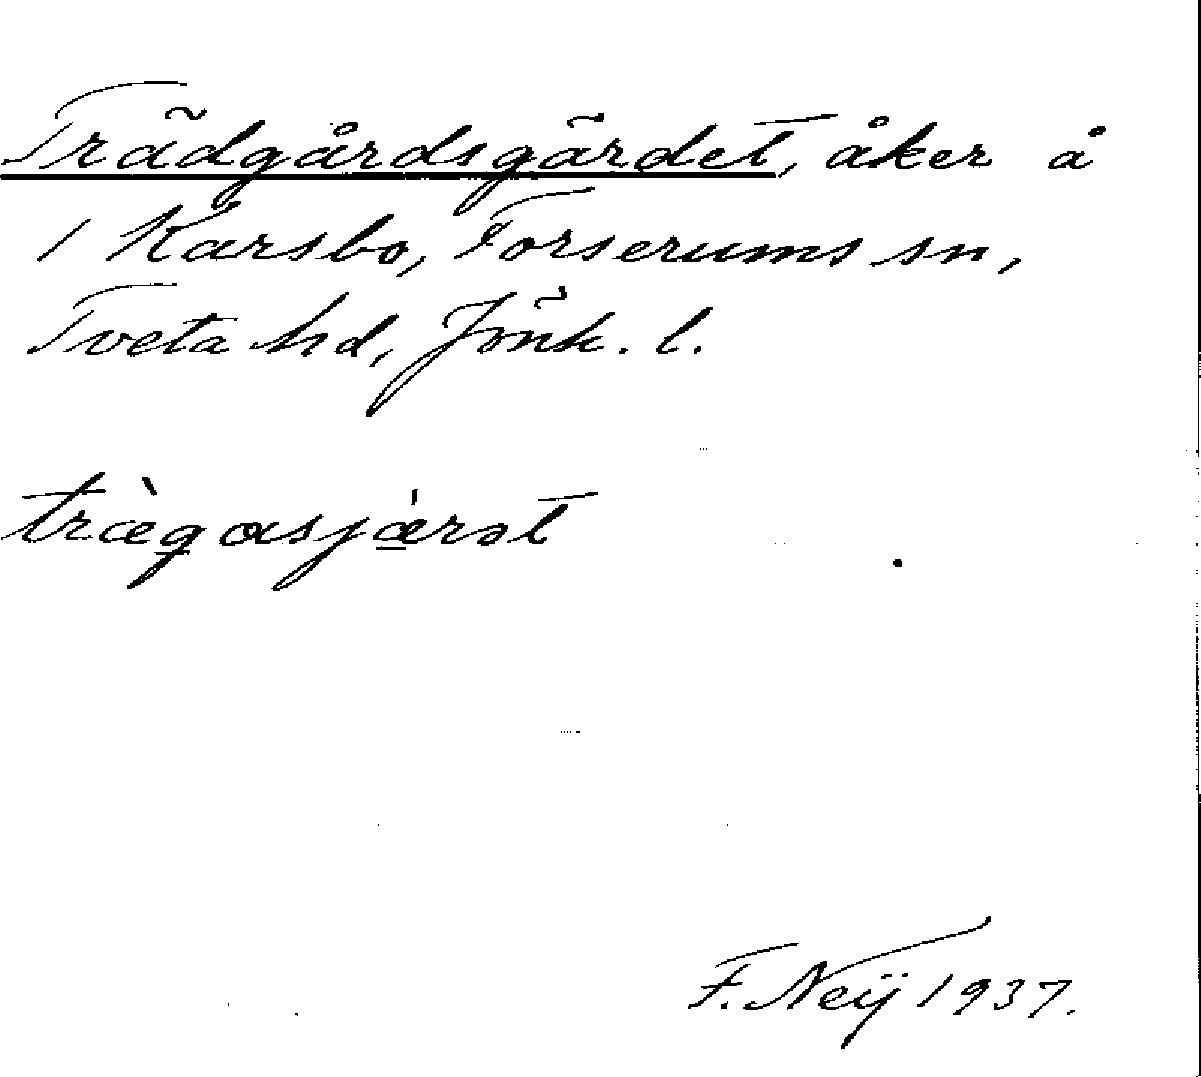 Trädgårdsgärdet, åker å
1 Karsbo, Forserums sn,
Tveta hd, Jönk. l.
træ̀gasjæ̇rət
F. Neÿ 1937.